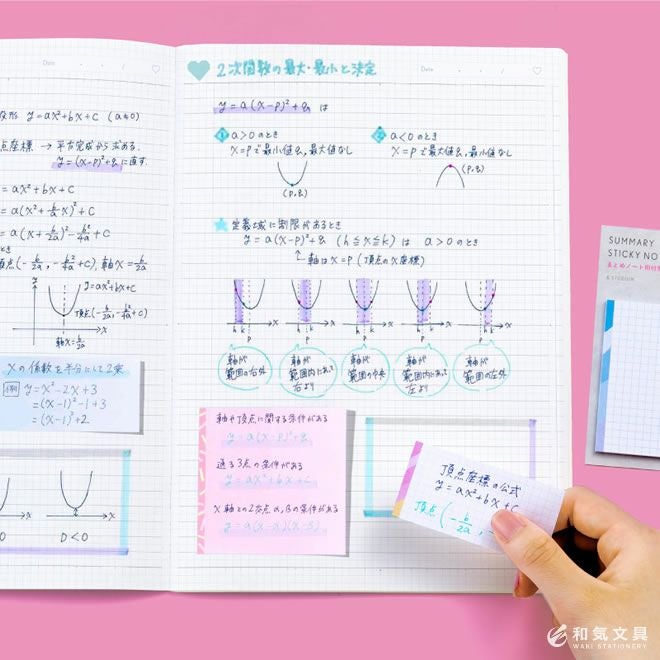 Date
形 y=ax²+bx+c (a≠0)
点座標 → 平方完成から求める.
y=(x-p)²+q に直す.
=ax²+bx+c
=a(x²+b/a x)²+c
=a(x+b/2a)²-b²/4a+c
とき
頂点(-b/2a, -b²/4a+c), 軸x=b/2a
y=ax²+bx+c
頂点(-b/2a, -b²/4a+c)
x
軸x=b/2a
xの係数を半分にして2乗
(例) y=x²-2x+3
=(x-1)²-1+3
=(x-1)²+2
x
x
D<0
2次関数の最大・最小と決定
Date
y=a(x-p)²+q は
1 a>0のとき
x=pで最小値q, 最大値なし
(p,q)
2 a<0のとき
x=pで最大値q, 最小値なし
(p,q)
定義域に制限があるとき
y=a(x-p)²+q (h≦x≦k) は a>0のとき
軸はx=p (頂点のx座標)
h k p x
h p k x
h p k x
h p k x
p h k x
軸が範囲の右外
軸が範囲内にあって右より
軸が範囲の中央
軸が範囲内にあって左より
軸が範囲の左外
軸や頂点に関する条件がある
y=a(x-p)²+q
通る3点の条件がある
y=ax²+bx+c
x軸との2交点α,βの条件がある
y=a(x-α)(x-β)
頂点座標の公式
y=ax²+bx+c
頂点(-b/2a,
SUMMARY
STICKY NO
まとめノート用付箋
和気文具
WAKI STATIONERY